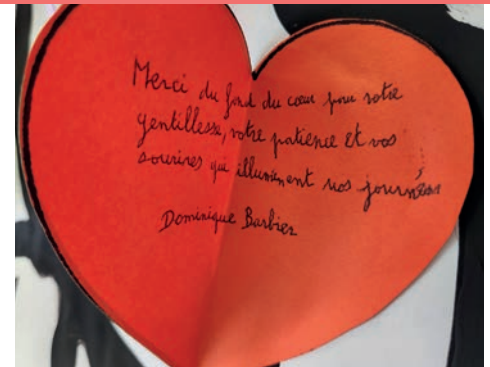 Merci du fond du cœur pour votre
gentillesse, votre patience et vos
sourires qui illuminent nos journées
Dominique Barbier